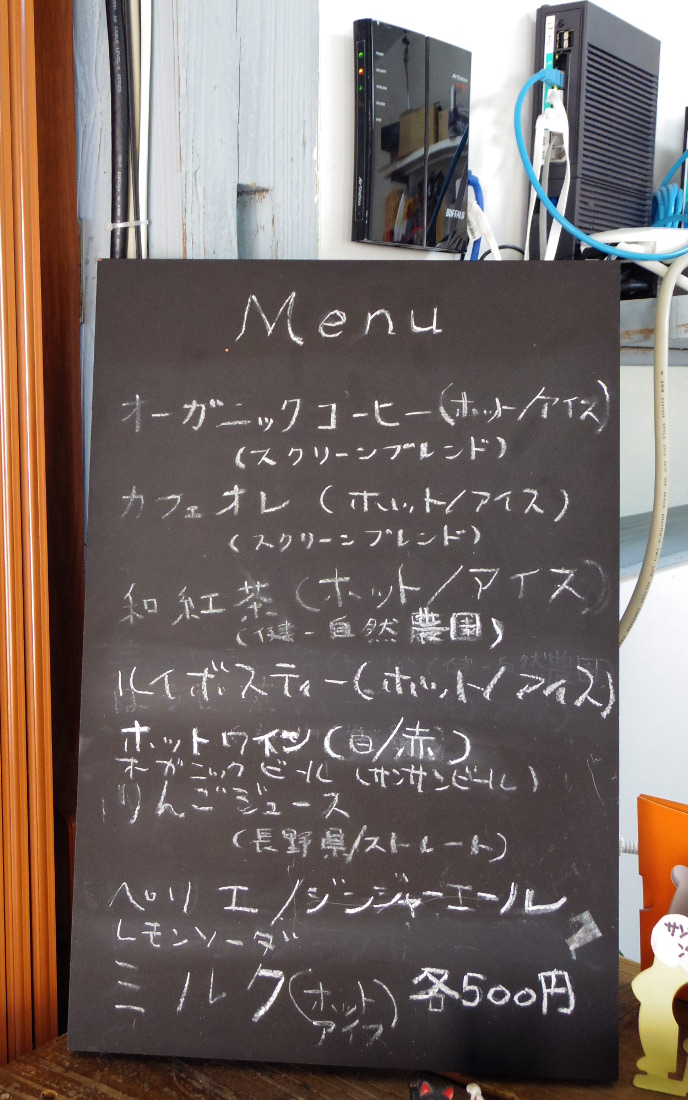 AirStation
BUFFALO
Menu
オーガニックコーヒー(ホット/アイス)
(スクリーンブレンド)
カフェオレ(ホット/アイス)
(スクリーンブレンド)
和紅茶(ホット/アイス)
(健一自然農園)
ルイボスティー(ホット/アイス)
ホットワイン(白/赤)
オーガニックビール(サンサンビール)
りんごジュース
(長野県/ストレート)
ペリエ/ジンジャーエール
レモンソーダ
ミルク(ホット
アイス)
各500円